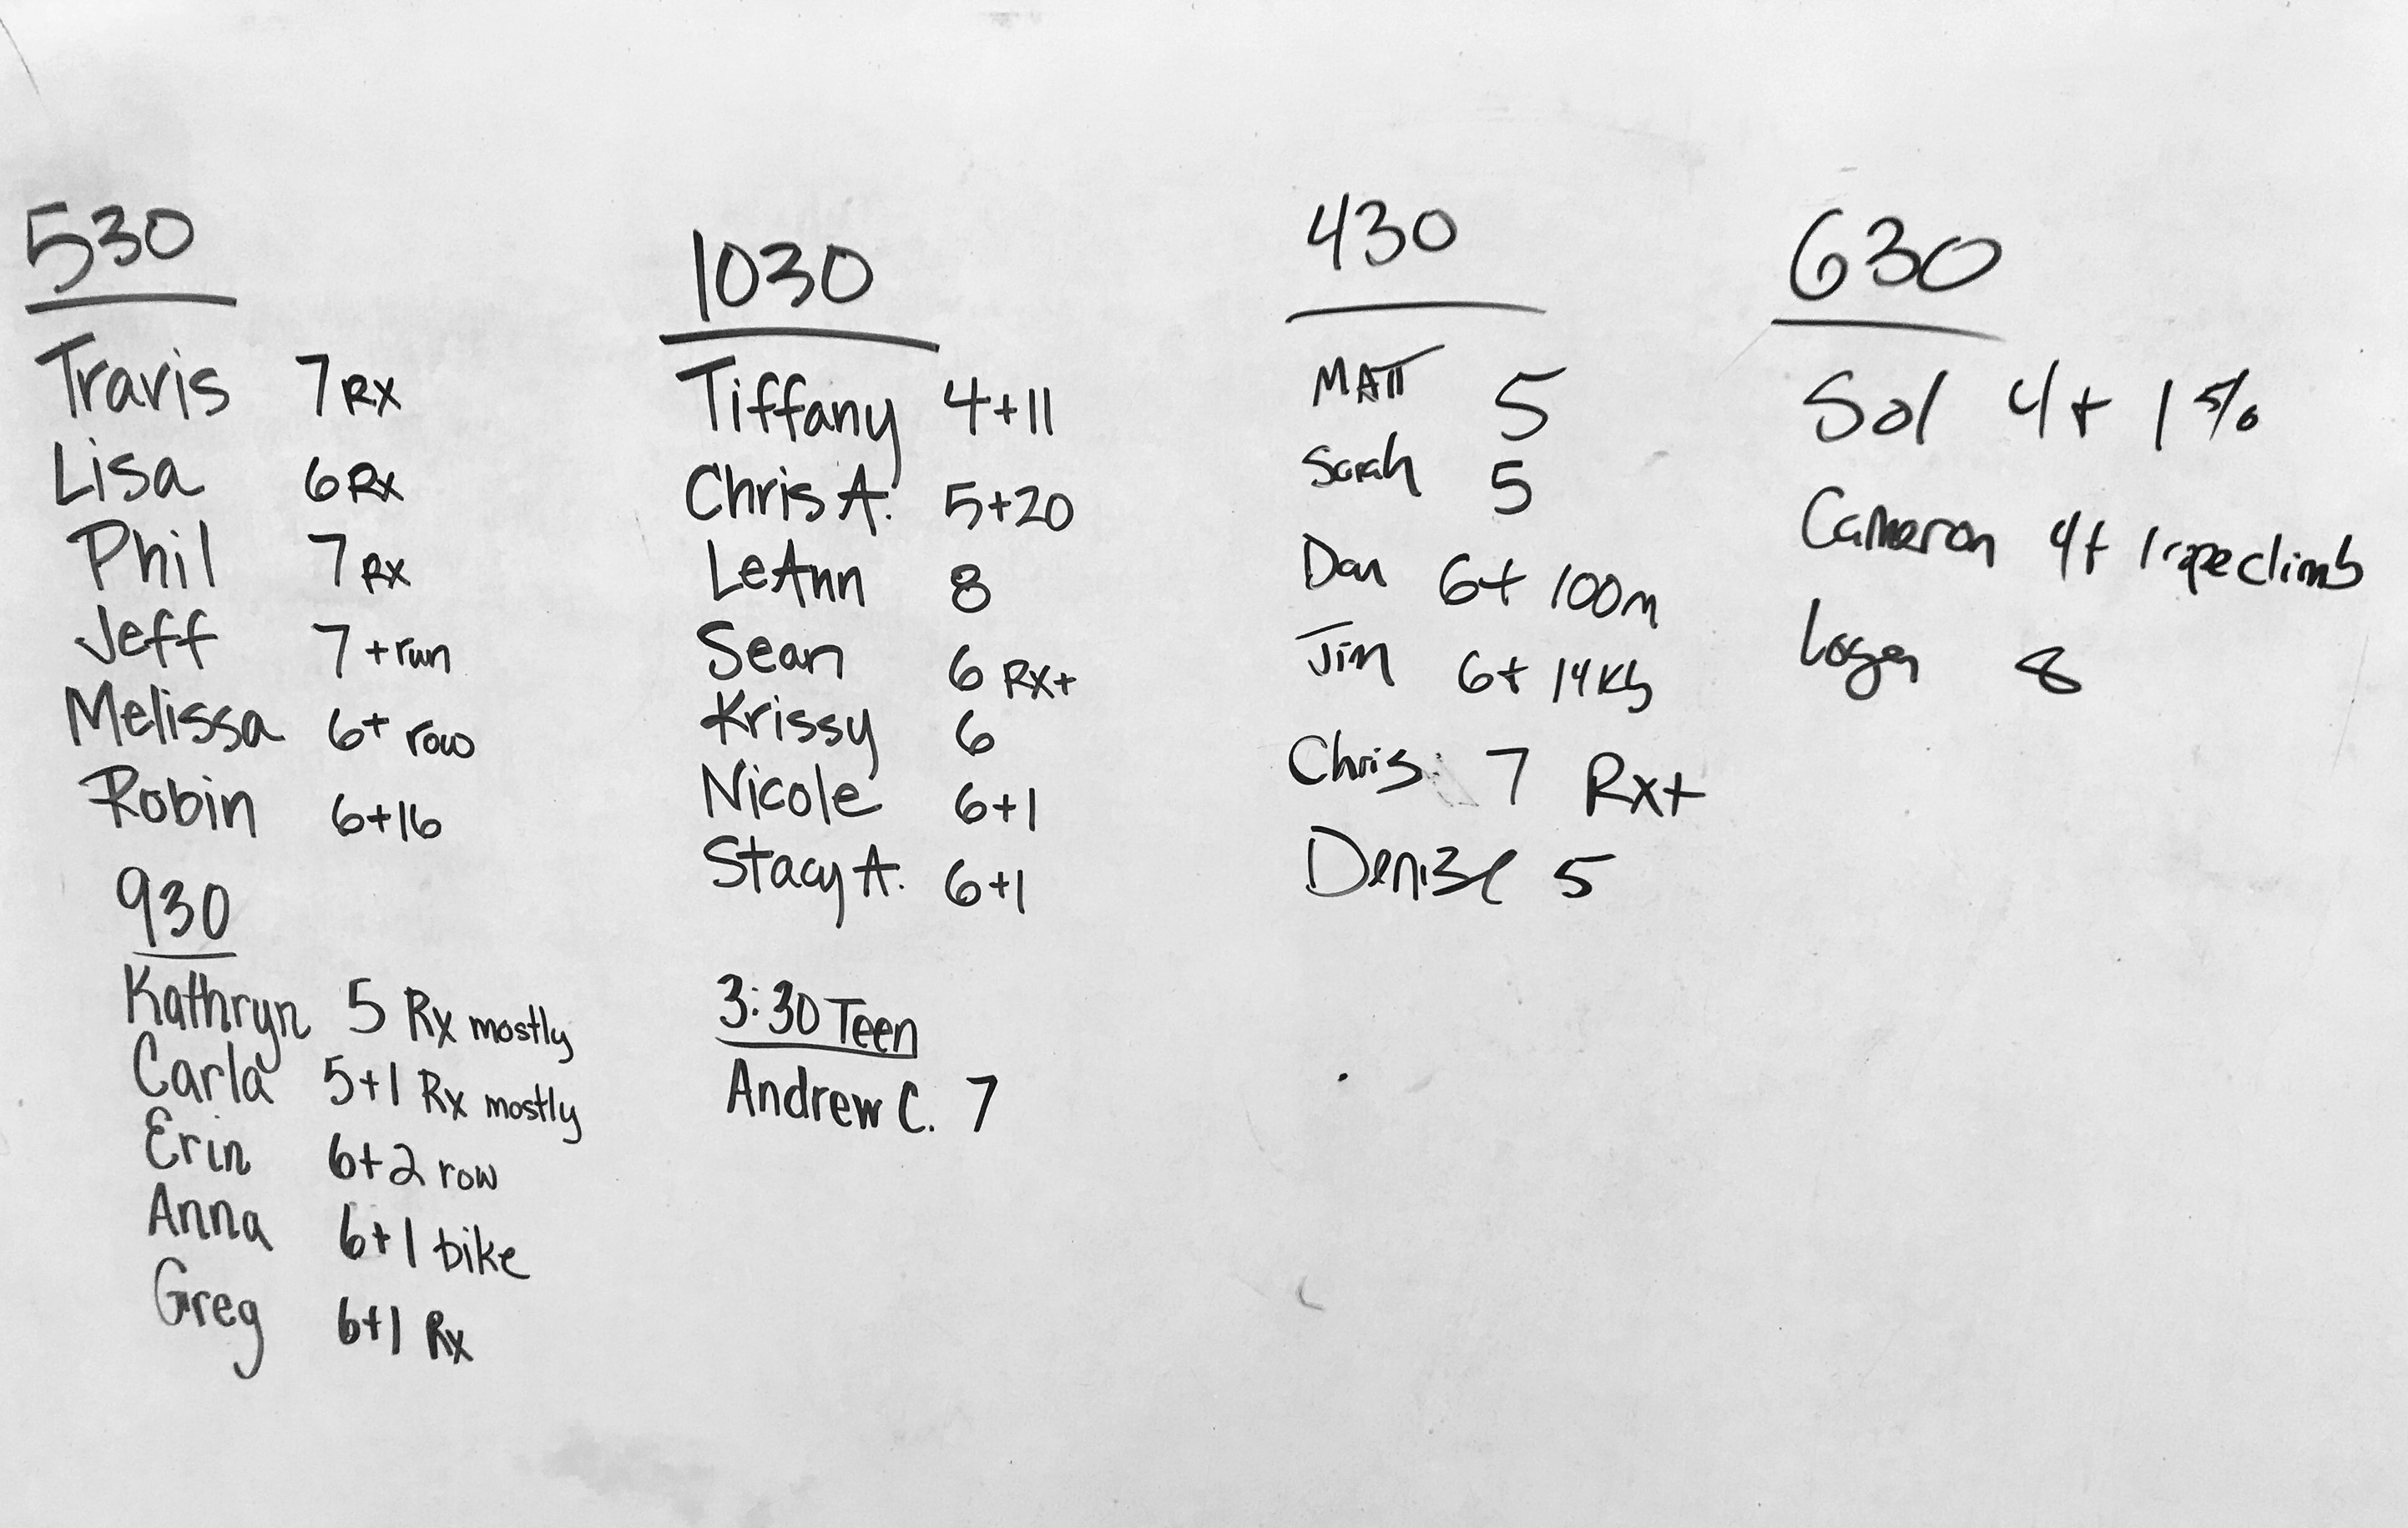 530
Travis 7 RX
Lisa 6 Rx
Phil 7 RX
Jeff 7 +run
Melissa 6+ row
Robin 6+16
930
Kathryn 5 Rx mostly
Carla 5+1 Rx mostly
Erin 6+2 row
Anna 6+1 bike
Greg 6+1 Rx
1030
Tiffany 4+11
Chris A. 5+20
LeAnn 8
Sean 6 RX+
Krissy 6
Nicole 6+1
Stacy A. 6+1
3:30 Teen
Andrew C. 7
430
MATT 5
Sarah 5
Dan 6+ 100m
Jim 6+ 14 Kb
Chris 7 Rx+
Denise 5
630
Sol 4+ 1
Cameron 4+ 1 rope climb
Logan 8